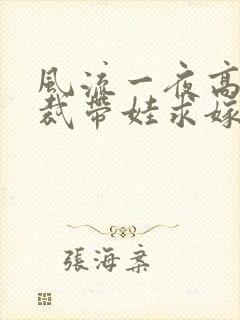 風流一夜高
裁帶娃求嫁
張海案